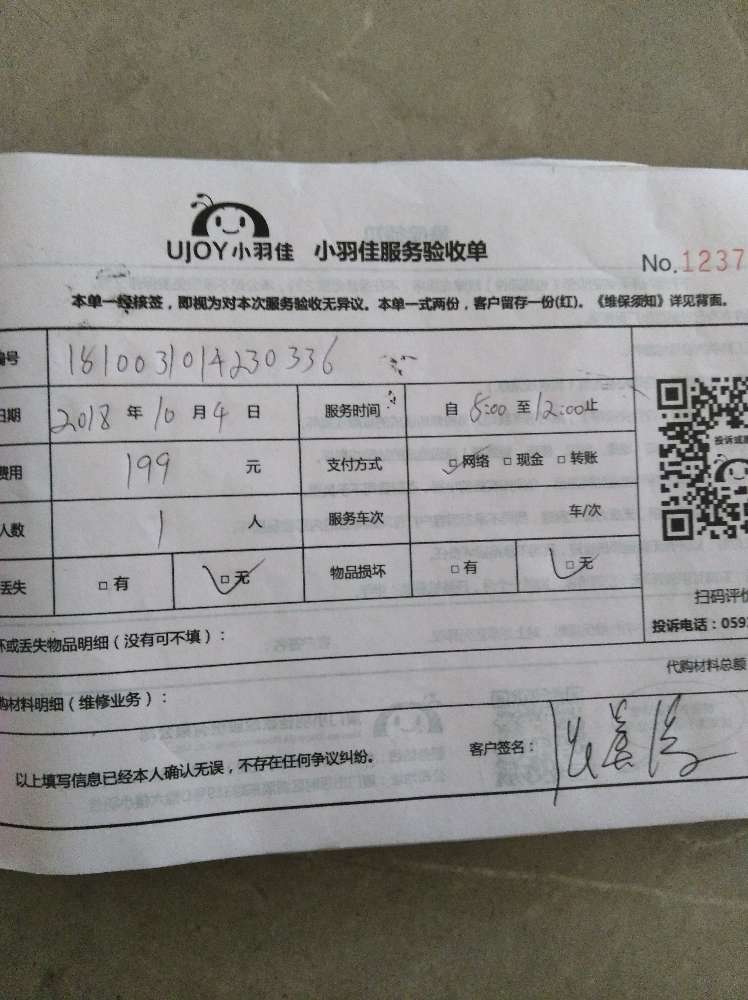 UJOY小羽佳 小羽佳服务验收单
No.1237
本单一经核签，即视为对本次服务验收无异议。本单一式两份，客户留存一份(红)。《维保须知》详见背面。
编号 1810031014230336
日期 2018 年 10 月 4 日 服务时间 自 8:00 至 12:00 止
费用 199 元 支付方式 □网络 □现金 □转账
人数 1 人 服务车次 车/次
丢失 □有 □无 物品损坏 □有 □无
扫码评价
坏或丢失物品明细（没有可不填）：
投诉电话：059
代购材料总额
购材料明细（维修业务）：
以上填写信息已经本人确认无误，不存在任何争议纠纷。
客户签名：